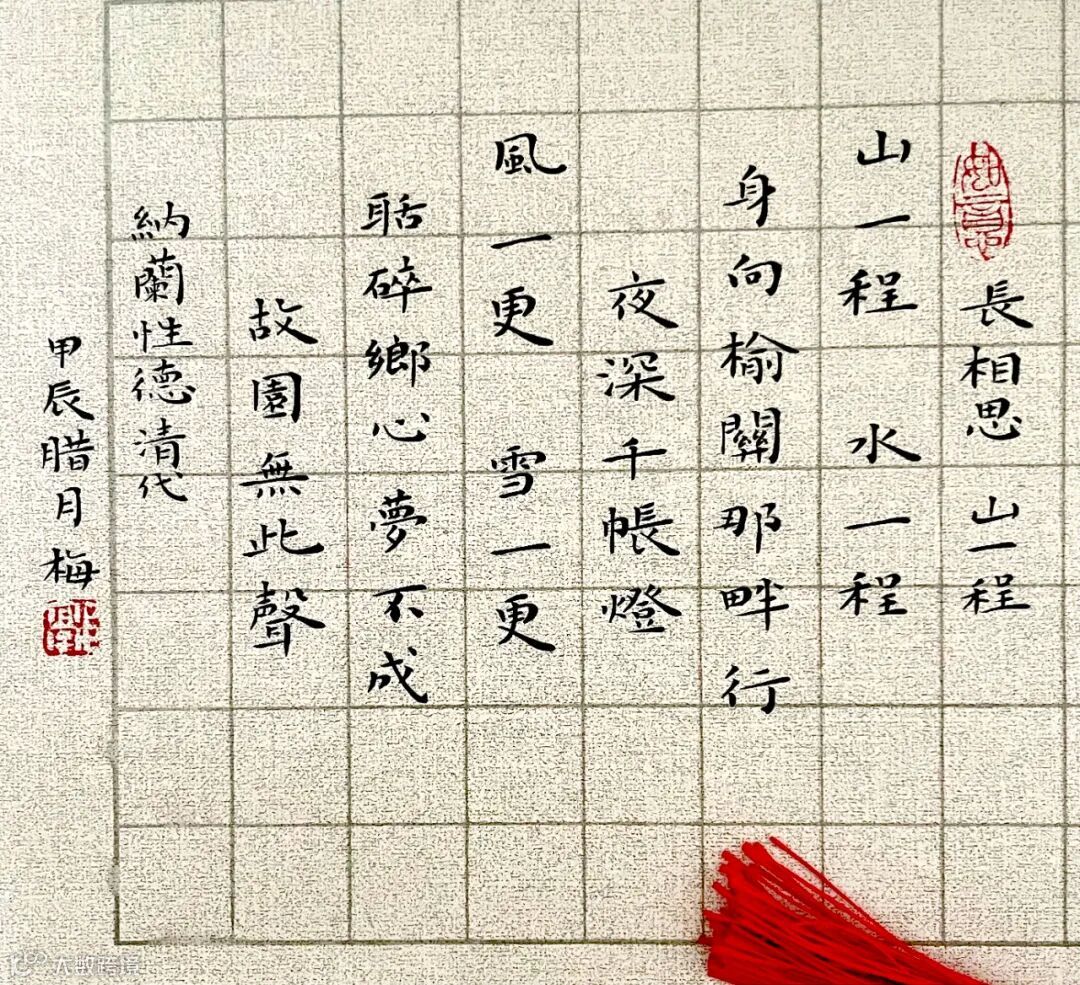 如意
長相思 山一程
山一程 水一程
身向榆關那畔行
夜深千帳燈
風一更 雪一更
聒碎鄉心夢不成
故園無此聲
納蘭性德清代
甲辰腊月梅
大数跨境